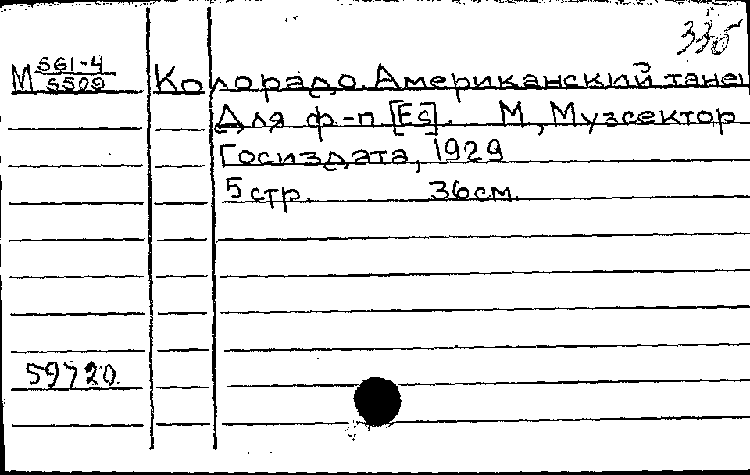 33б
М 561-4
5509
Колорадо. Американский танец
Для ф-п. [Es]. М., Музсектор
Госиздата, 1929
5 стр. 36 см.
59720